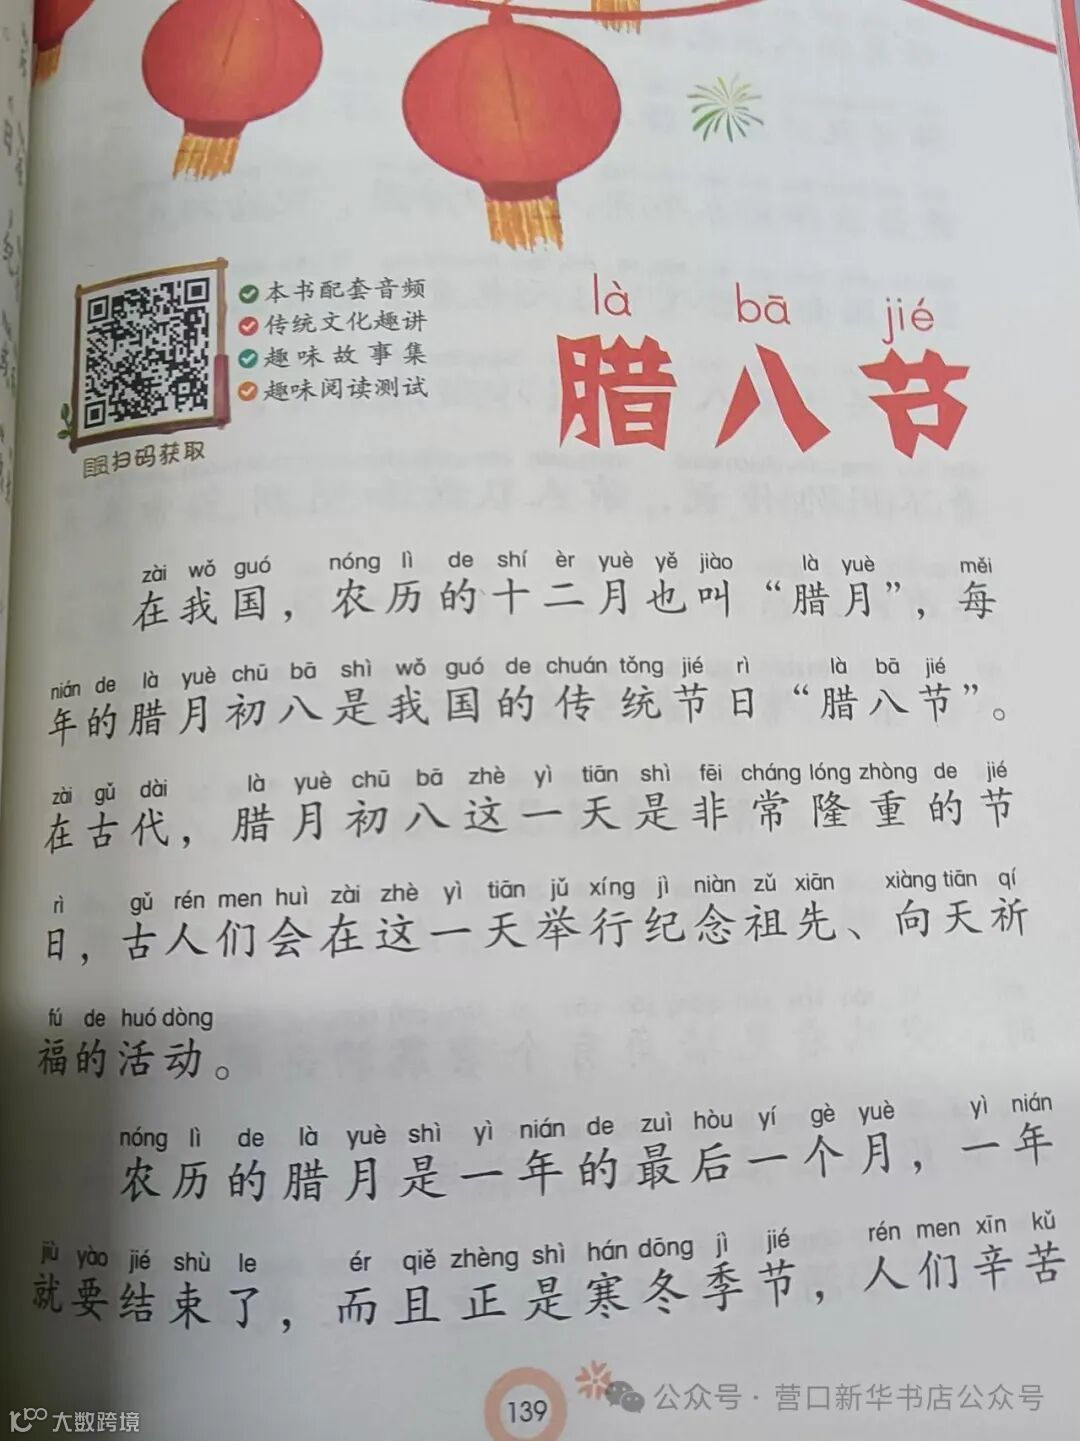 本书配套音频
传统文化趣讲
趣味故事集
趣味阅读测试
扫码获取
là bā jié
腊八节
zài wǒ guó nóng lì de shí èr yuè yě jiào là yuè měi
在我国，农历的十二月也叫“腊月”，每
nián de là yuè chū bā shì wǒ guó de chuán tǒng jié rì là bā jié
年的腊月初八是我国的传统节日“腊八节”。
zài gǔ dài là yuè chū bā zhè yì tiān shì fēi cháng lóng zhòng de jié
在古代，腊月初八这一天是非常隆重的节
rì gǔ rén men huì zài zhè yì tiān jǔ xíng jì niàn zǔ xiān xiàng tiān qí
日，古人们会在这一天举行纪念祖先、向天祈
fú de huó dòng
福的活动。
nóng lì de là yuè shì yì nián de zuì hòu yí gè yuè yì nián
农历的腊月是一年的最后一个月，一年
jiù yào jié shù le ér qiě zhèng shì hán dōng jì jié rén men xīn kǔ
就要结束了，而且正是寒冬季节，人们辛苦
139
公众号·营口新华书店公众号
大数跨境